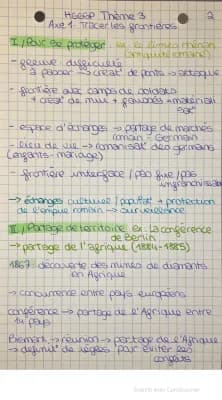 HGGSP Thème 3 2
Axe 1 - Tracer les frontières
I / Pour se protéger. ex. le limes rhénan
(antiquité romaine)
- fleuve difficulté
à passer → creat° de ponts → attaque
- frontière avec camps de soldats
+ creat° de mur + fossés + matériel
- espace d'échanges → partage de marchés
romain - Germain
- lieu de vie → romanisat° des germains
(enfants - mariage)
- frontière interface / pas fixe / pas
infranchissable
→ échanges culturel / populat° + protection
de l'empire romain → surveillance
II / Partage de territoire ex. La conférence
de Berlin
→ partage de l'afrique (1884-1885)
1867 découverte des mines de diamants
en Afrique
→ concurrence entre pays européens
conférence → partage de l'Afrique entre
14 pays
Bismark → réunion → partage de l'Afrique
→ définit° de règles pour éviter les
conflits